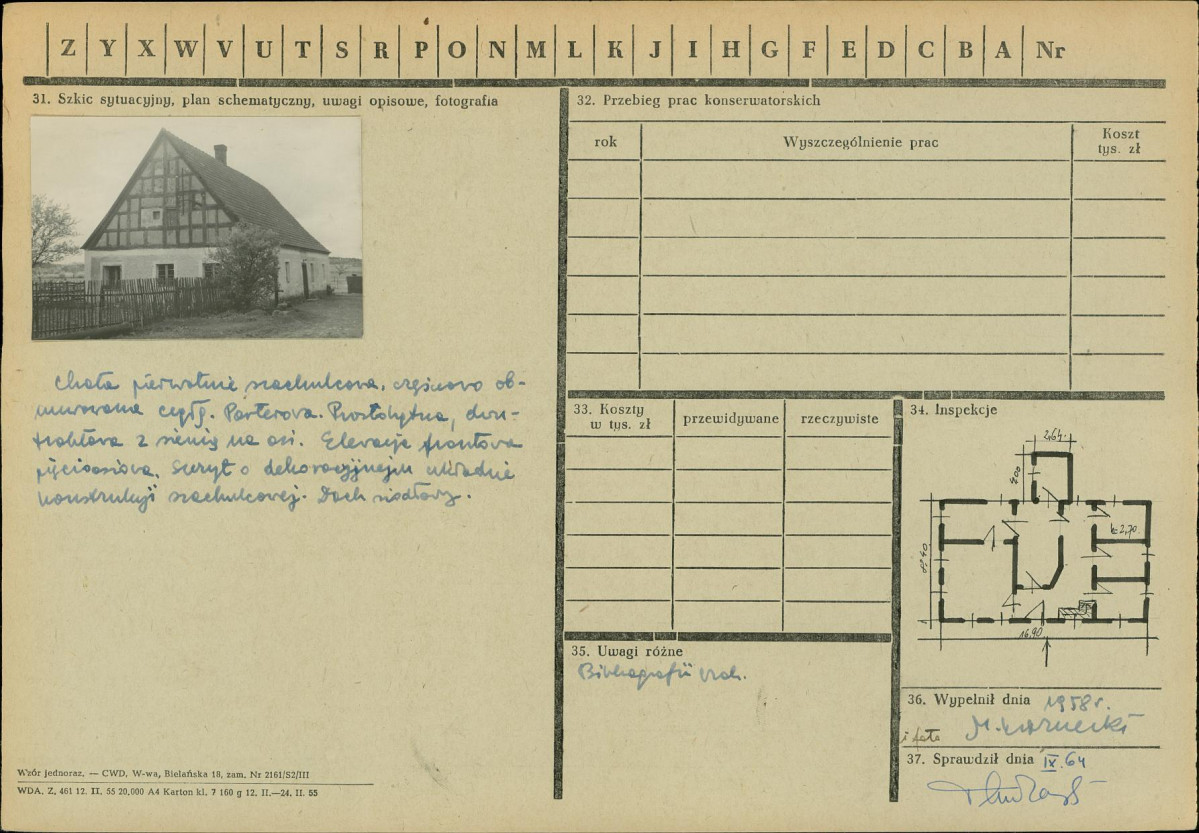 Z Y X W V U T S R P O N M L K J I H G F E D C B A Nr
31. Szkic sytuacyjny, plan schematyczny, uwagi opisowe, fotografia
Chata pierwotnie szachulcowa, częściowo ob-
murowana cegłą. Parterowa. Prostokątna, dwu-
traktowa z sienią na osi. Elewacja frontowa
pięcioosiowa. Szczyt o dekoracyjnejm układzie
konstrukcji szachulcowej. Dach siodłowy.
Wzór jednoraz. — CWD, W-wa, Bielańska 18, zam. Nr 2161/S2/III
WDA. Z. 461 12. II. 55 20,000 A4 Karton kl. 7 160 g 12. II.—24. II. 55
32. Przebieg prac konserwatorskich
rok
Wyszczególnienie prac
Koszt
tys. zł
33. Koszty
w tys. zł
przewidywane
rzeczywiste
34. Inspekcje
2,64
4,00
h=2,70
8,40
16,90
35. Uwagi różne
Bibliografii brak.
36. Wypełnił dnia 1958 r.
i fota
37. Sprawdził dnia IX.64